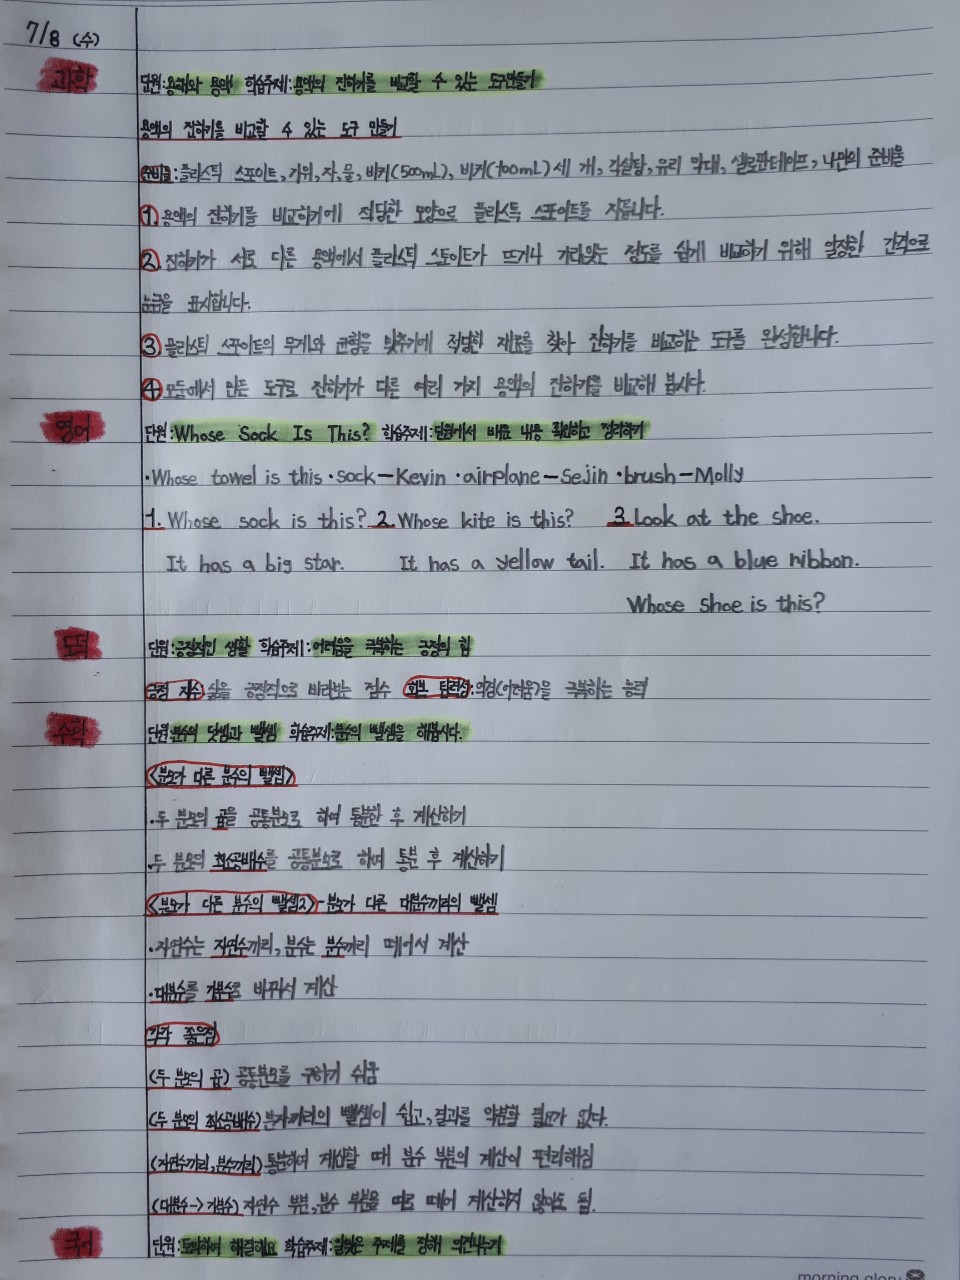 7/8 (수)
과학
단원:용해와 용액 학습주제:용액의 진하기를 비교할 수 있는 도구만들기
용액의 진하기를 비교할 수 있는 도구 만들기
준비물:플라스틱 스포이트, 가위, 자, 물, 비커(500mL), 비커(100mL) 세 개, 각설탕, 유리 막대, 셀로판테이프, 나만의 준비물
1. 용액의 진하기를 비교하기에 적당한 모양으로 플라스틱 스포이트를 자릅니다.
2. 진하기가 서로 다른 용액에서 플라스틱 스포이트가 뜨거나 가라앉는 정도를 쉽게 비교하기 위해 일정한 간격으로
눈금을 표시합니다.
3 플라스틱 스포이트의 무게와 균형을 맞추기에 적당한 재료를 찾아 진하기를 비교하는 도구를 완성합니다.
4 모둠에서 만든 도구로 진하기가 다른 여러 가지 용액의 진하기를 비교해 봅시다.
영어
단원:Whose Sock Is This? 학습주제:단원에서 배운 내용 확인하고 정리하기
·Whose towel is this ·sock-Kevin ·airplane-Sejin ·brush-Molly
1. Whose sock is this? 2. Whose kite is this? 3. Look at the shoe.
It has a big star. It has a yellow tail. It has a blue ribbon.
Whose shoe is this?
도덕
단원:긍정적인 생활 학습주제:어려움을 극복하는 긍정의 힘
긍정 지수 삶을 긍정적으로 바라보는 점수 회복 탄력성:역경(어려움)을 극복하는 능력
수학
단원:분수의 덧셈과 뺄셈 학습주제:분수의 뺄셈을 해봅시다.
<분모가 다른 분수의 뺄셈>
·두 분모의 곱을 공통분모로 하여 통분한 후 계산하기
·두 분모의 최소공배수를 공통분모로 하여 통분 후 계산하기
<분모가 다른 분수의 뺄셈2>-분모가 다른 대분수끼리의 뺄셈
·자연수는 자연수끼리, 분수는 분수끼리 떼어서 계산
·대분수를 가분수로 바꿔서 계산
각각 좋은점
(두 분모의 곱) 공통분모를 구하기 쉬움
(두 분모의 최소공배수) 분자끼리의 뺄셈이 쉽고, 결과를 약분할 필요가 없다.
(자연수끼리, 분수끼리) 통분하여 계산할 때 분수 부분의 계산이 편리해짐
(대분수->가분수) 자연수 부분, 분수 부분을 따로 떼어 계산하지 않아도 됨.
국어
단원:토의하여 해결해요 학습주제:알맞은 주제를 정해 의견나누기
morning glory